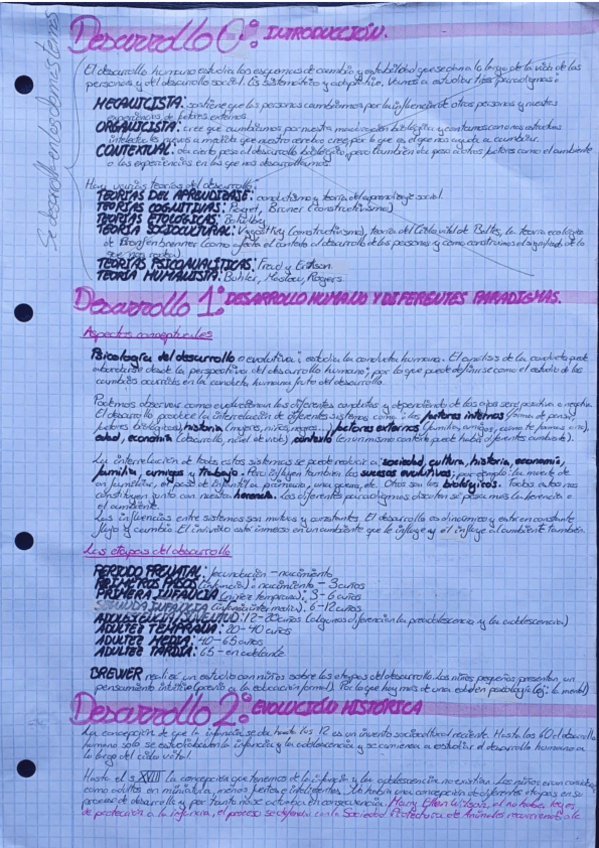 Desarrollo 0: INTRODUCCIÓN.
Se desarrolla en los demás temas
El desarrollo humano estudia los esquemas de cambio y estabilidad que se dan a lo largo de la vida de las
personas y del desarrollo social. Es sistemático y adaptativo. Vamos a estudiar tres paradigmas:
MECANICISTA: sostiene que las personas cambiamos por la influencia de otras personas y nuestras
experiencias de factores externos.
ORGANICISTA: cree que cambiamos por nuestra maduración biológica y contamos con estructuras
intelectuales nuevas a medida que nuestro cerebro crece, por lo que es el que nos ayuda a cambiar.
CONTEXTUAL: da cierto peso al desarrollo biológico, pero también da peso a otros factores como el ambiente
o las experiencias en las que nos desarrollamos.
Hay varias teorías del desarrollo:
TEORÍAS DEL APRENDIZAJE: conductismo y teoría del aprendizaje social.
TEORÍAS COGNITIVAS: Piaget, Bruner (constructivismo)
TEORÍAS ETOLÓGICAS: Bowlby
TEORÍA SOCIOCULTURAL: Vygostky (constructivismo), teoría del Ciclo vital de Baltes, la teoría ecológica
de Bronfenbrenner (como afecta el contexto al desarrollo de las personas y como construimos el significado de lo
que nos rodea)
TEORÍAS PSICOANALÍTICAS: Freud y Erikson.
TEORÍA HUMANISTA: Buhler, Maslow, Rogers.
Desarrollo 1: DESARROLLO HUMANO Y DIFERENTES PARADIGMAS.
Aspectos conceptuales
Psicología del desarrollo o evolutiva: estudia la conducta humana. El análisis de la conducta puede
abordarse desde la perspectiva del desarrollo humano, por lo que puede definirse como el estudio de los
cambios ocurridos en la conducta humana fruto del desarrollo.
Podemos observar como evolucionan las diferentes conductas y dependiendo de los ojos será positiva o negativa.
El desarrollo produce la interrelación de diferentes sistemas como: los factores internos (forma de pensar,
factores biológicos), historia (mujeres, niños, negros...), factores externos (familia, amigos, como te famos a ...),
edad, economía (desarrollo, nivel de vida), contexto (en un mismo contexto puede haber diferentes cambios).
La interrelación de todos estos sistemas se puede reducir a: sociedad, cultura, historia, economía,
familia, amigos y trabajo. Pero influyen también los sucesos evolutivos; por ejemplo: la muerte de
un familiar, el paso de infantil a primaria, una guerra, etc. Otros son los biológicos. Todos estos nos
constituyen junto con nuestra herencia. Los diferentes paradigmas discuten si pesa más la herencia o
el ambiente.
Las influencias entre sistemas son mutuas y constantes. El desarrollo es dinámico y está en constante
flujo y cambio. El individuo está inmerso en un ambiente que le influye y él influye al ambiente también.
Las etapas del desarrollo
PERIODO PRENATAL: fecundación - nacimiento
PRIMEROS PASOS (infancia): nacimiento - 3 años
PRIMERA INFANCIA (niñez temprana): 3-6 años
SEGUNDA INFANCIA (infancia intermedia): 6-12 años
ADOLESCENCIA/JUVENTUD: 12-20 años (algunos diferencian la preadolescencia y la adolescencia)
ADULTEZ TEMPRANA: 20-40 años
ADULTEZ MEDIA: 40-65 años
ADULTEZ TARDÍA: 65 - en adelante
BREWER realizó un estudio con niños sobre las etapas del desarrollo. Los niños pequeños presentan un
pensamiento intuitivo (previo a la educación formal). Por lo que hay más de una edad en psicología (ej: la mental)
Desarrollo 2: EVOLUCIÓN HISTÓRICA
La concepción de que la infancia se da hasta los 12 es un invento sociocultural reciente. Hasta los 60 el desarrollo
humano solo se estudiaba en la infancia y la adolescencia y se comienza a estudiar el desarrollo humano a
lo largo del ciclo vital.
Hasta el s. XVIII la concepción que tenemos de la infancia y la adolescencia no existían. Los niños eran considerados
como adultos en miniatura, menos fuertes e inteligentes. No había una concepción de diferentes etapas en su
proceso de desarrollo y por tanto no se actuaba en consecuencia. Mary Ellen Wilson, al no haber leyes
de protección a la infancia, el proceso se defendió con la Sociedad Protectora de Animales